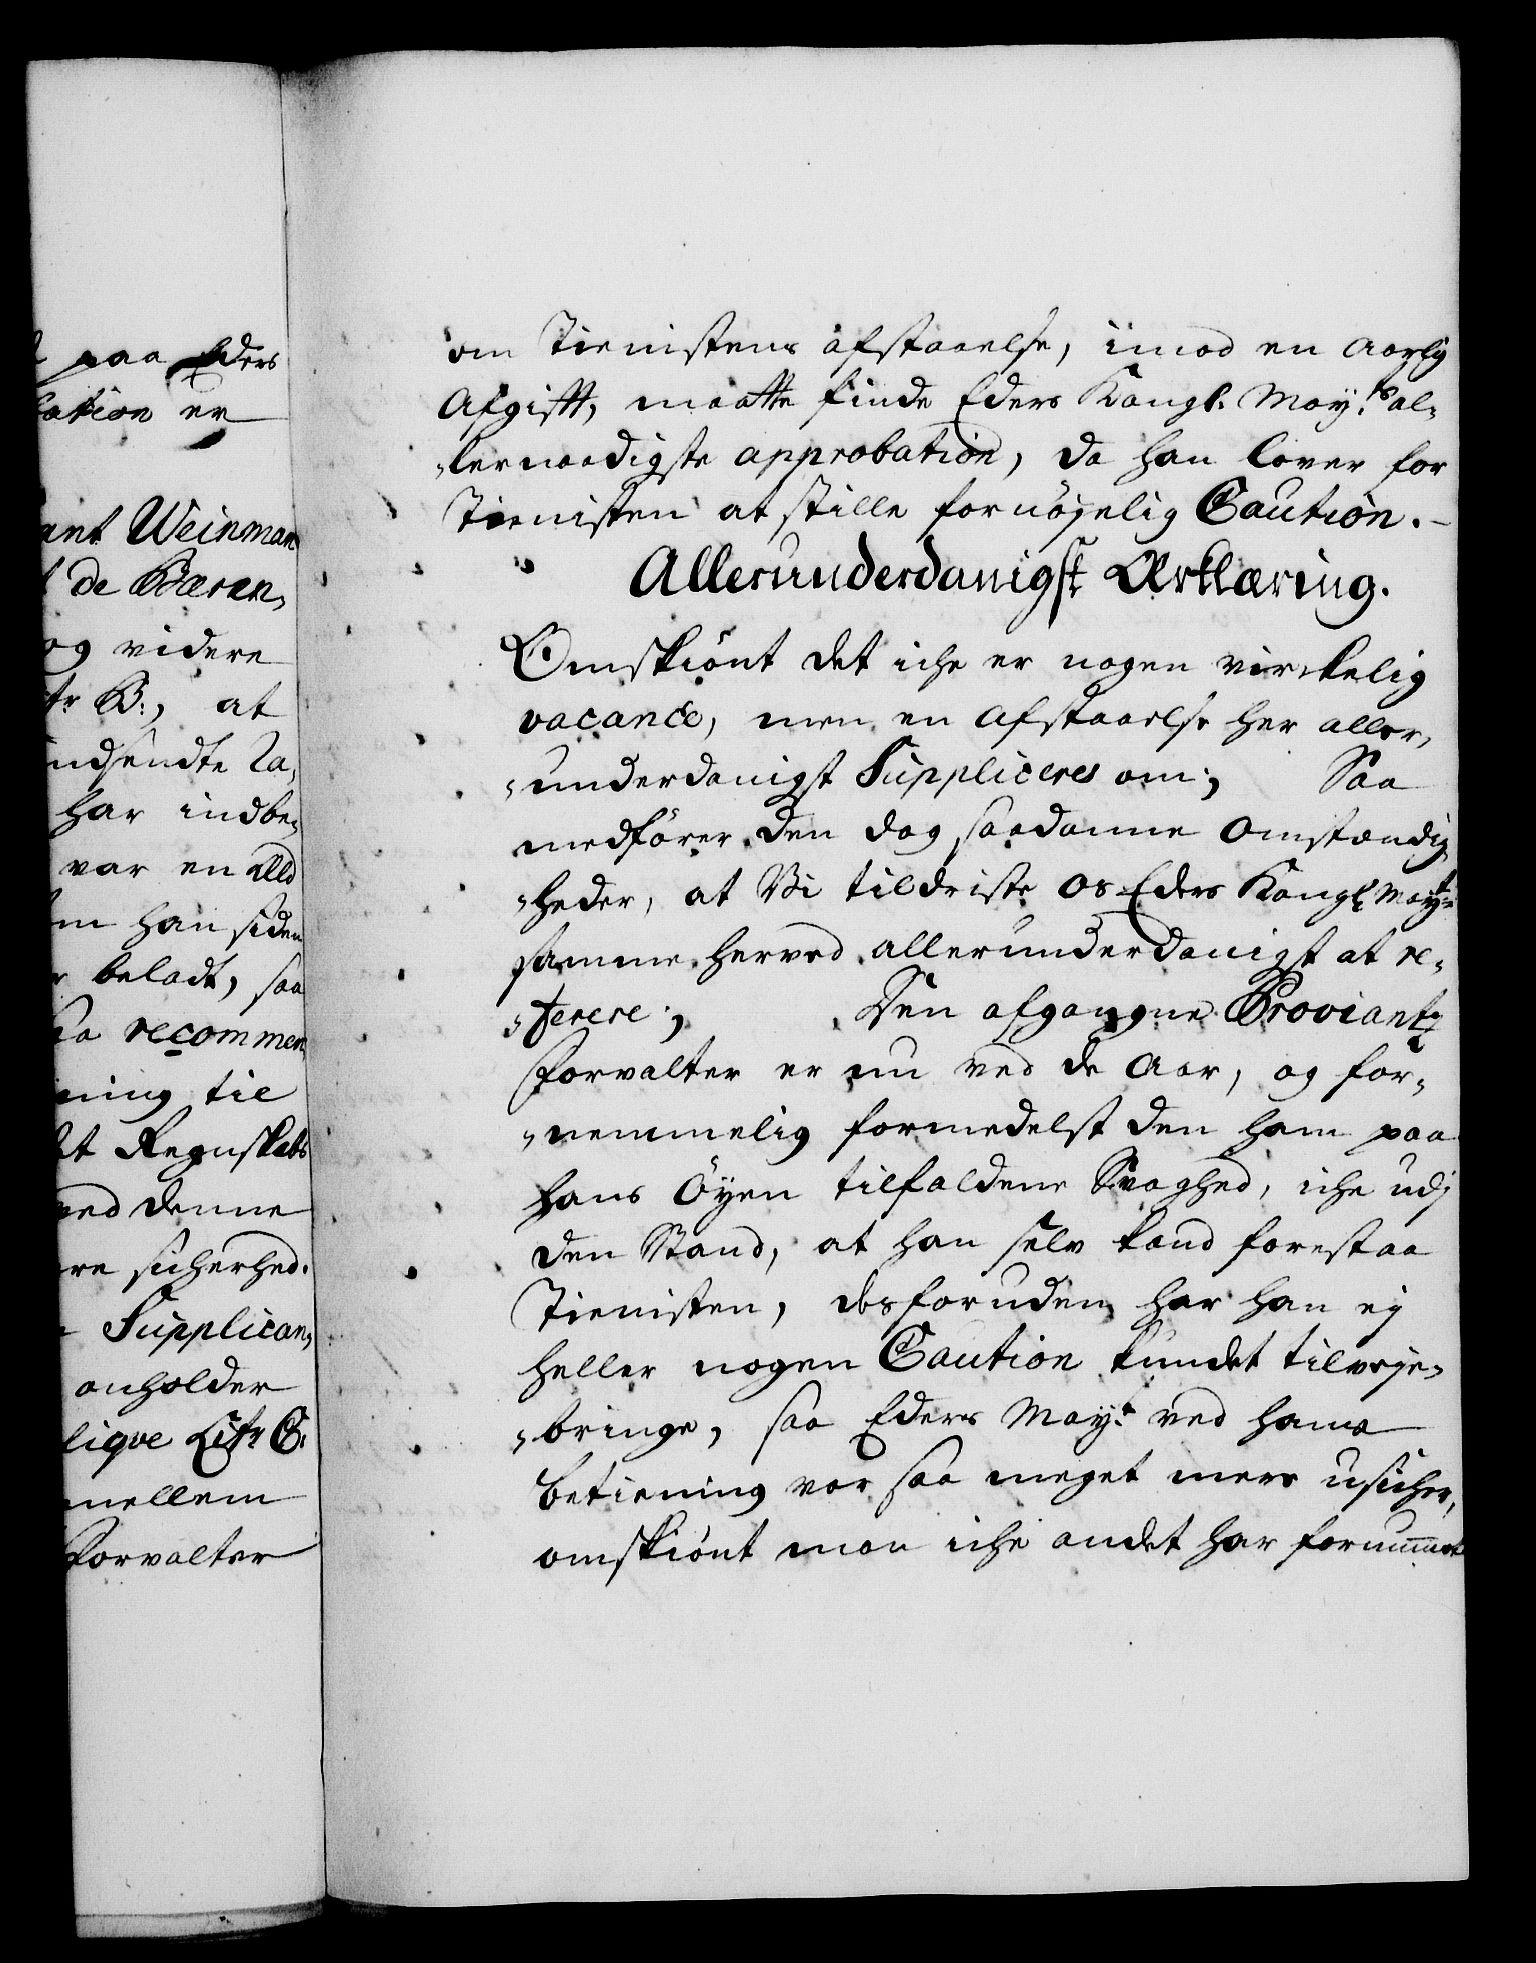 paa Eders
cation er
ant Weinman
de Bæran,
og videre
tr B:, at
ndsendte Ta,
har indbe,
var en alld
m han siden
beladt, saa
recommen
ning til
Regnskabs
ved denne
re sicherhed.
Supplican,
anholder
lique Litr C.
mellem
Forvalter
om Tienistens afstaaelse, imod en aarlig
Afgifft, maatte finde Eders Kongl. May.ts al„
„lernaadigste approbation, da han lover for
Tienisten at stille fornøyelig Caution. -
Allerunderdanigst Ærklæring.
Omskiönt det iche er nogen virckelig
vacance, men en Afstaaelse her aller„
„underdanigst Suppliceres om; Saa
medförer den dog saadanne Omstændig
„heder, at Vi tildriste os Eders Kongl. May.t
samme herved allerunderdanigst at re„
„ferere; Den afgangne Proviant
Forvalter er nu ved de Aar, og for„
„nemmelig formedelst den ham paa
hans Öyen tilfaldene Svaghed, iche udj
den Stand, at han selv kand forestaa
Tienisten, desforuden har han ej
heller nogen Caution kundet tilveje„
„bringe, saa Eders May.t ved hans
betiening var saa meget mere usicher,
omskiönt man iche andet har fornummet